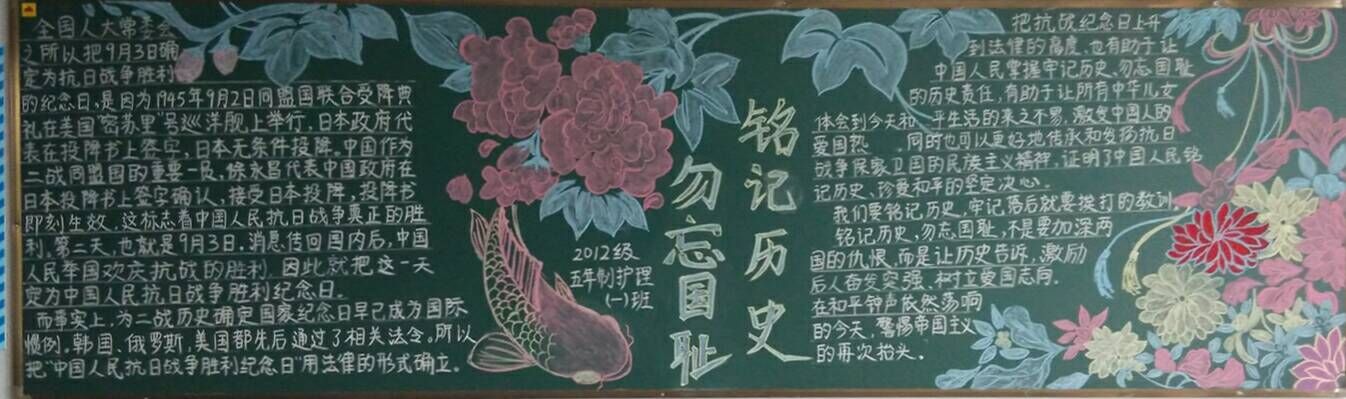 全国人大常委会
之所以把9月3日确
定为抗日战争胜利
的纪念日，是因为1945年9月2日同盟国联合受降典
礼在美国"密苏里"号巡洋舰上举行，日本政府代
表在投降书上签字，日本无条件投降。中国作为
二战同盟国的重要一员，徐永昌代表中国政府在
日本投降书上签字确认，接受日本投降，投降书
即刻生效。这标志着中国人民抗日战争真正的胜
利。第二天，也就是9月3日，消息传回国内后，中国
人民举国欢庆抗战的胜利，因此就把这一天
定为中国人民抗日战争胜利纪念日。
而事实上，为二战历史确定国家纪念日早已成为国际
惯例。韩国、俄罗斯，美国都先后通过了相关法令。所以
把"中国人民抗日战争胜利纪念日"用法律的形式确立。
2012级
五年制护理
(一)班
铭记历史
勿忘国耻
把抗战纪念日上升
到法律的高度，也有助于让
中国人民掌握牢记历史、勿忘国耻
的历史责任，有助于让所有中华儿女
体会到今天和平生活的来之不易，激发中国人的
爱国热 同时也可以更好地传承和发扬抗日
战争保家卫国的民族主义精神，证明了中国人民铭
记历史、珍爱和平的坚定决心。
我们要铭记历史，牢记落后就要挨打的教训，
铭记历史，勿忘国耻，不是要加深两
国的仇恨，而是让历史告诉，激励
后人奋发突强、树立爱国志向。
在和平钟声依然荡响
的今天，警惕帝国主义
的再次抬头。